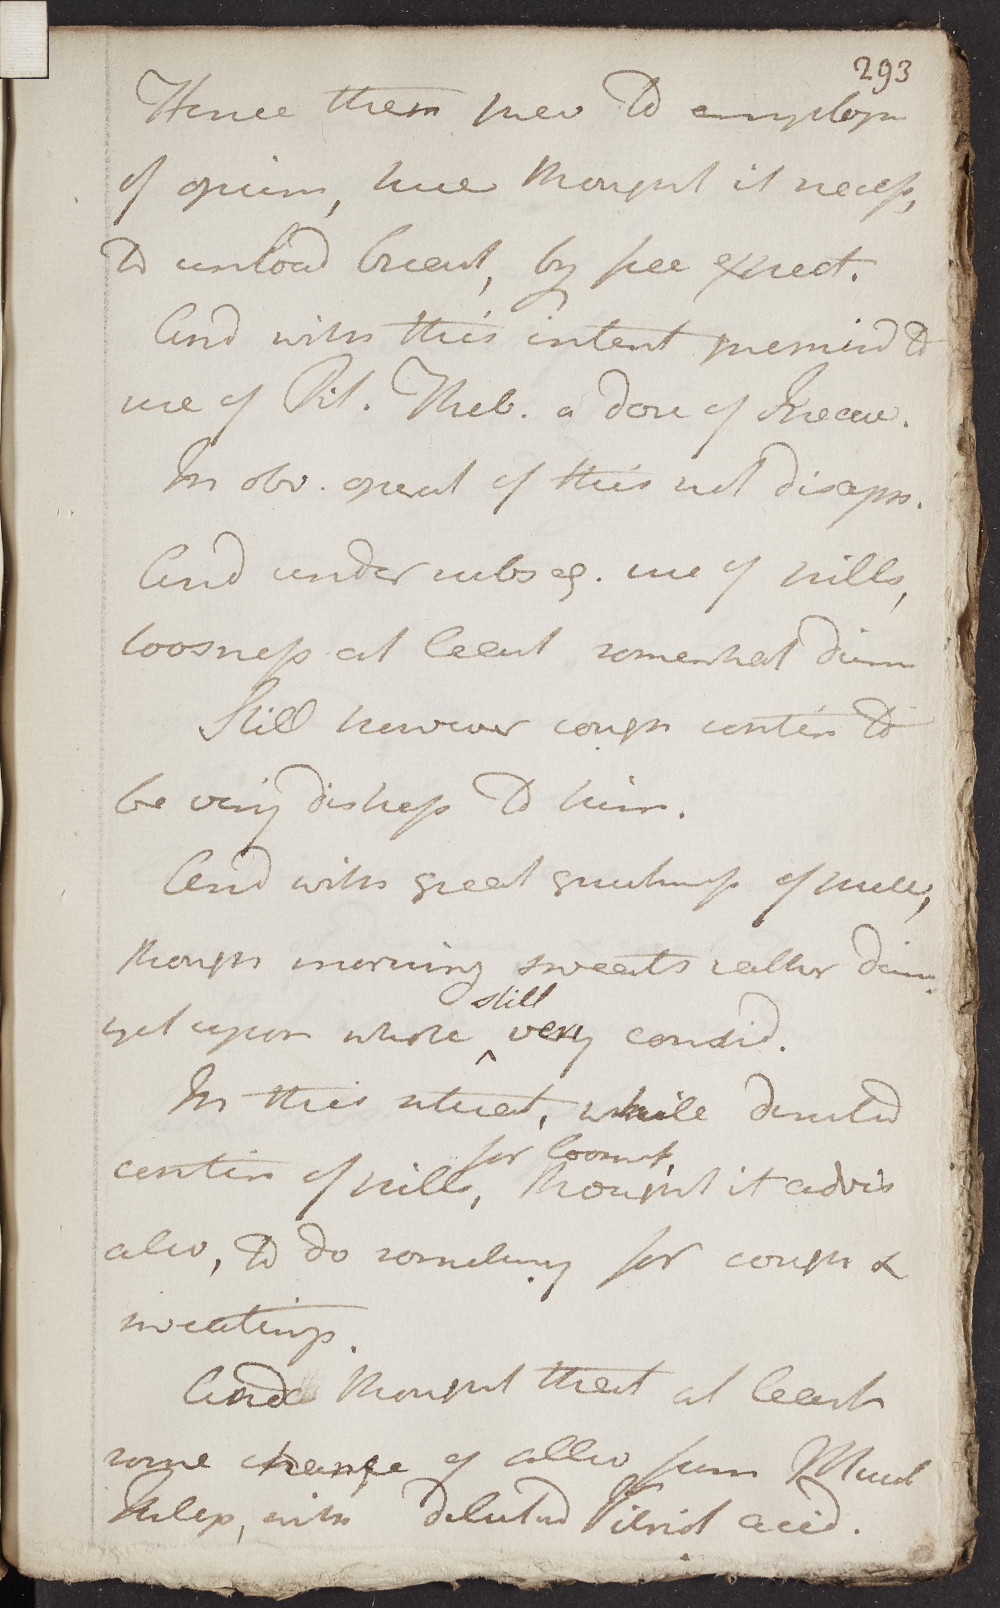 293
Hence then prev to employm
of opium, have thought it necess,
to unload breast, by free expect.
And with this intent premised to
use of Pil. Theb. a dose of Ipecac.
In obv. operat of this not disapp.
And under subseq. use of pills,
loosness at least somewhat dimin
Still however cough contin to
be very distress to him.
And with great quickness of pulse,
though morning sweats rather dimin
yet upon whole still very consid.
In this situat, while directed
contin of pills, for loosness, thought it advis
also, to do something for cough &
sweatings.
And thought that at least
some change of allev from Mucil
Julep, with diluted Vitriol acid.